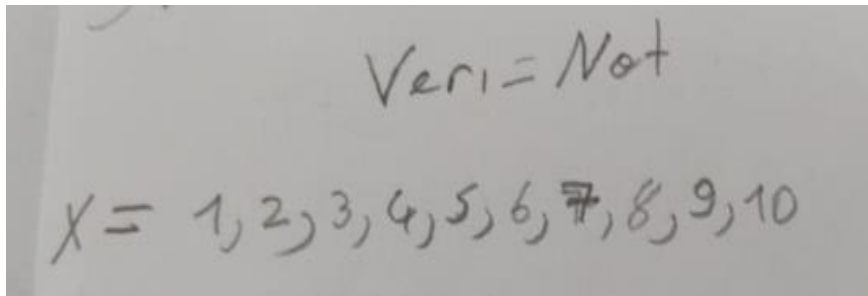 Veri = Not
X = 1, 2, 3, 4, 5, 6, 7, 8, 9, 10